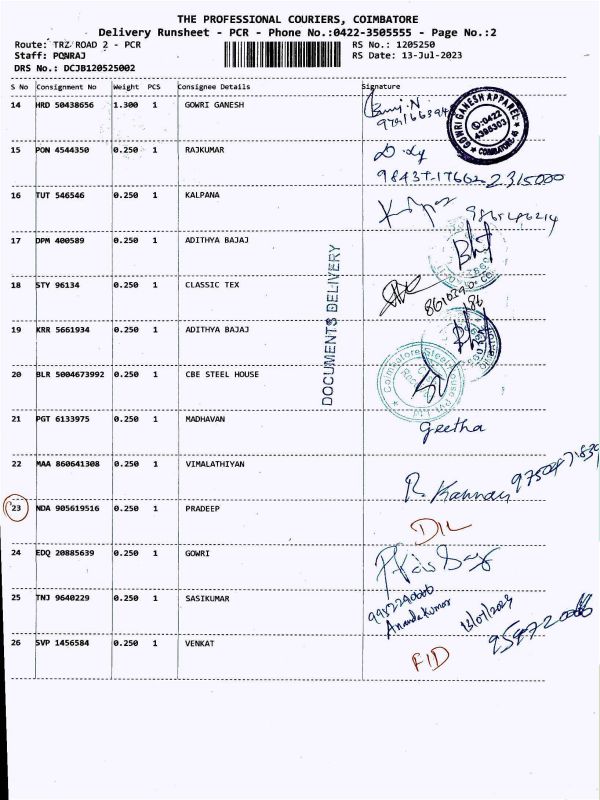 THE PROFESSIONAL COURIERS, COIMBATORE
Delivery Runsheet - PCR - Phone No.:0422-3505555 - Page No.:2
Route: TRZ ROAD 2 - PCR RS No.: 1205250
Staff: PONRAJ RS Date: 13-Jul-2023
DRS No.: DCJB120525002
S No Consignment No Weight PCS Consignee Details Signature
14 HRD 50438656 1.300 1 GOWRI GANESH
GOWRI GANESH APPAREL
0422
4398303
COIMBATORE
15 PON 4544350 0.250 1 RAJKUMAR
16 TUT 546546 0.250 1 KALPANA
17 DPM 400589 0.250 1 ADITHYA BAJAJ
18 STY 96134 0.250 1 CLASSIC TEX
19 KRR 5661934 0.250 1 ADITHYA BAJAJ
DOCUMENTS DELIVERY
20 BLR 5004673992 0.250 1 CBE STEEL HOUSE
Coimbatore Steel House
21 PGT 6133975 0.250 1 MADHAVAN Geetha
22 MAA 860641308 0.250 1 VIMALATHIYAN
R. Kannan
23 NDA 905619516 0.250 1 PRADEEP
24 EDQ 20885639 0.250 1 GOWRI
25 TNJ 9640229 0.250 1 SASIKUMAR
Anandakumar
26 SVP 1456584 0.250 1 VENKAT